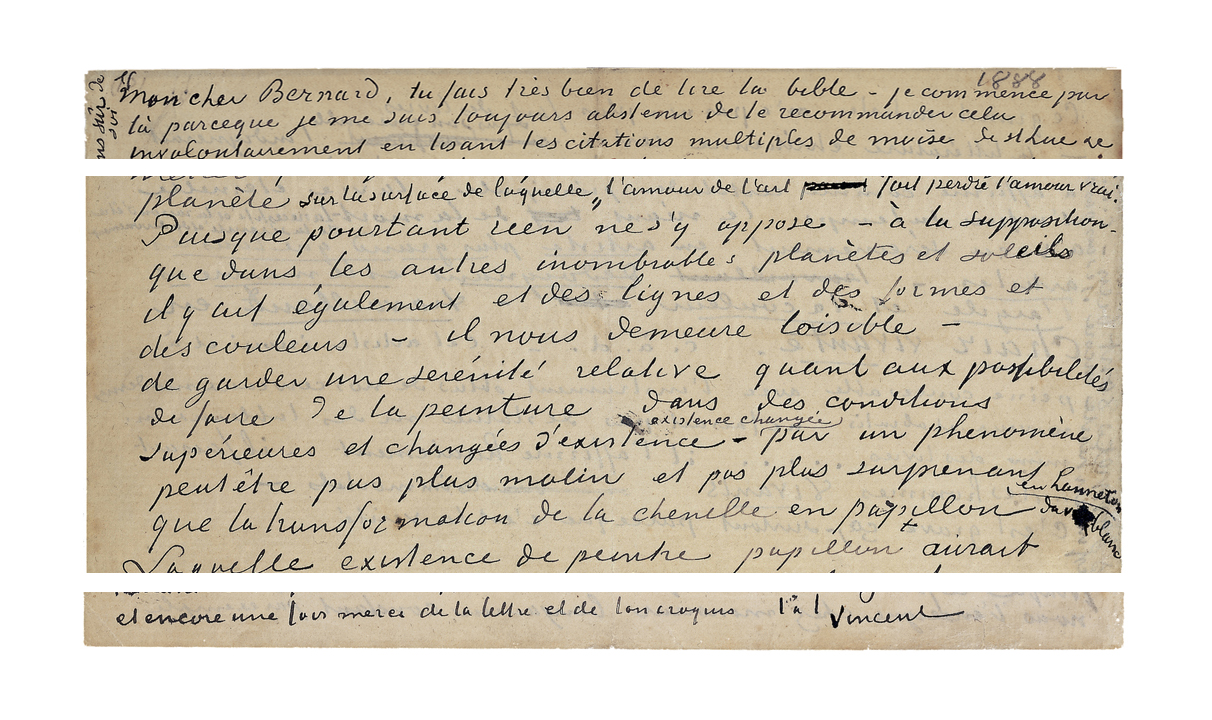 1888
Mon cher Bernard, tu fais très bien de lire la bible – je commence par
là parceque je me suis toujours abstenu de te recommander cela
involontairement en lisant les citations multiples de moïse de st Luc
planète sur la surface de laquelle, „l'amour de l'art fait perdre l'amour vrai.
Puisque pourtant rien ne s'y oppose – à la supposition –
que dans les autres inombrables planètes et soleils
il y ait également et des lignes et des formes et
des couleurs – il nous demeure loisible –
de garder une sérénité relative quant aux possibilités
de faire de la peinture dans des conditions
existence changée
supérieures et changées d'existence – par un phenomène
peutêtre pas plus malin et pas plus surprenant
que la transformation de la chenille en papillon du ver blanc
en hanneton
Laquelle existence de peintre papillon aurait
et encore une fois merci de la lettre et de ton croquis t. à t. Vincent